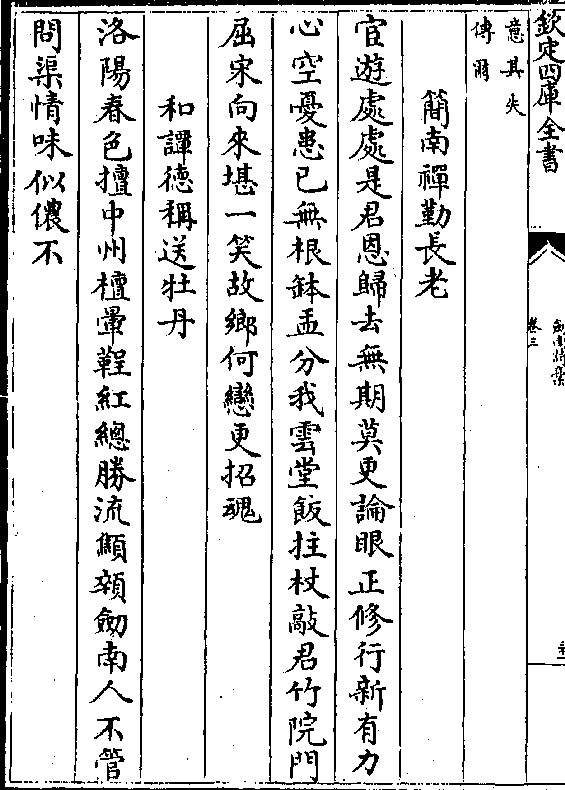 欽定四庫全書
劍南詩藁
卷三
意其失
傳爾
簡南禪勤長老
宦遊處處是君恩歸去無期莫更論眼正修行新有力
心空憂患已無根鉢盂分我雲堂飯拄杖敲君竹院門
屈宋向來堪一笑故鄉何戀更招魂
和譚德稱送牡丹
洛陽春色擅中州檀暈鞓紅總勝流顦顇劒南人不管
問渠情味似儂不